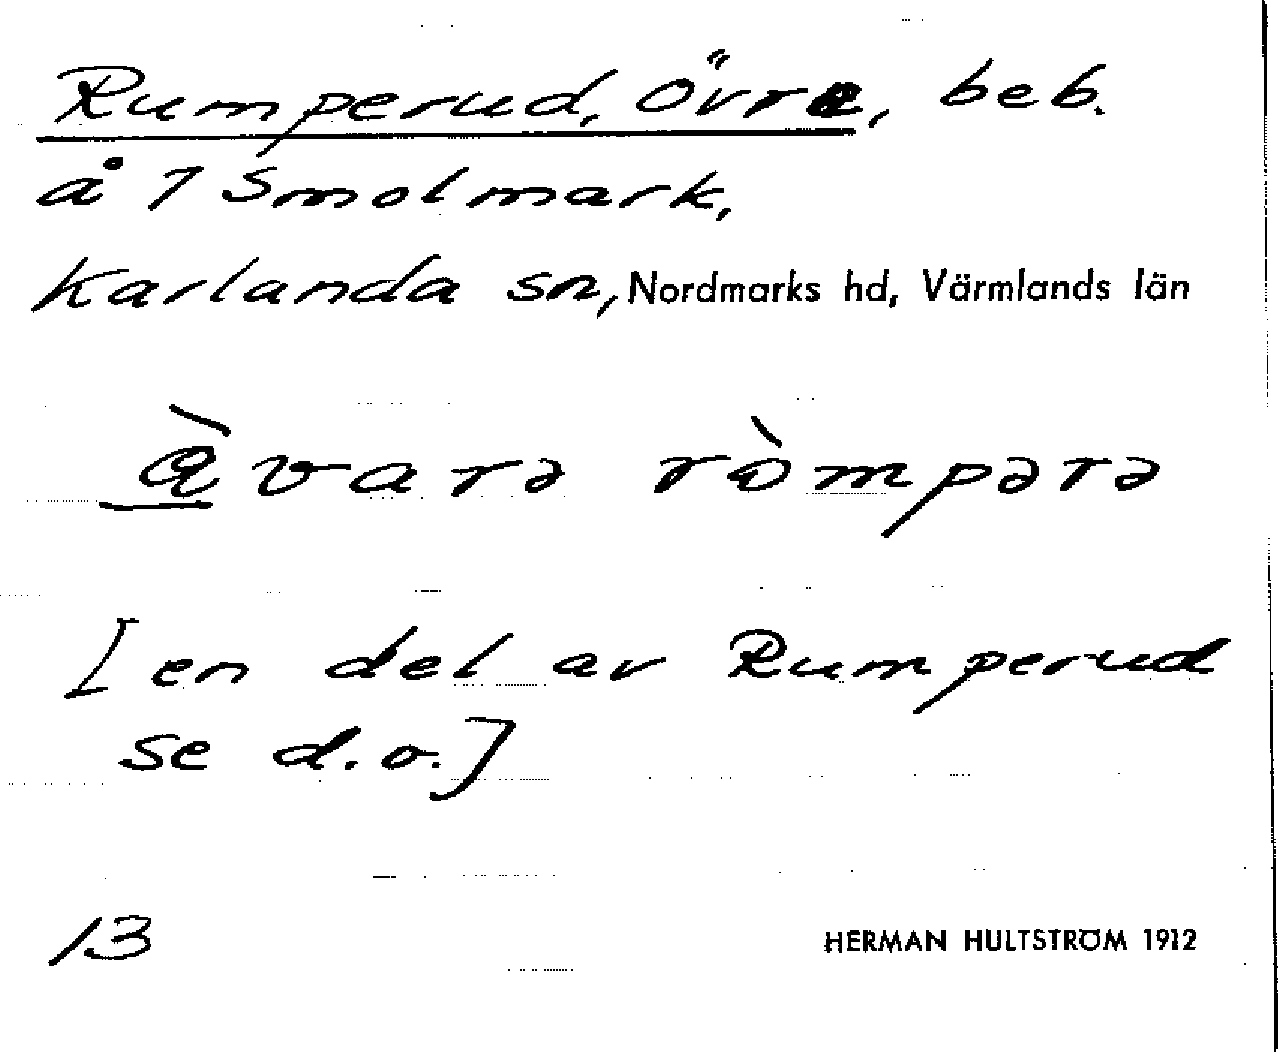 Rumperud, Övre, beb.
å 7 Smolmark,
Karlanda sn, Nordmarks hd, Värmlands län
àvarə ròmpərə
[en del av Rumperud
se d.o.]
13
HERMAN HULTSTRÖM 1912